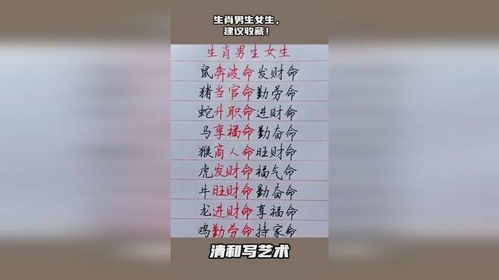 生肖男生女生,
建议收藏!
生肖男生女生
鼠奔波命发财命
猪当官命勤劳命
蛇升职命进财命
马享福命勤奋命
猴商人命旺财命
虎发财命福气命
牛旺财命勤奋命
龙进财命享福命
鸡勤劳命持家命
清和写艺术